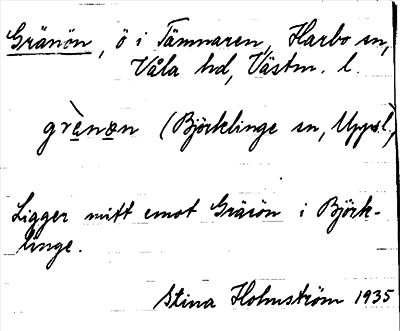 Gränön, ö i Tämnaren, Harbo sn,
Våla hd, Västm. l.
grènøn (Björklinge sn, Upps.l.)
Ligger mitt emot Gräsön i Björk-
linge.
Stina Holmström 1935